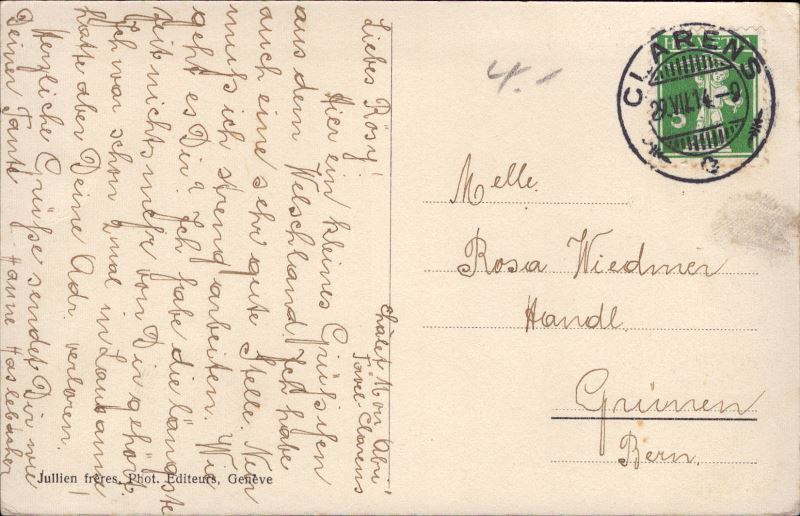 Liebes Rösy!
Hier ein kleines Grüsschen
aus dem Welschland. Ich habe
auch eine sehr gute Stelle. Nur
muss ich streng arbeiten. Wie
geht es Dir? Ich habe die längste
Zeit nichts mehr von Dir gehört.
Ich war schon 2 mal in Lausanne
hatte aber Deine Adr. verloren.
Herzliche Grüße sendet Dir wie
Deiner Tante Hanne Haslebacher
Châlet Mon Abri
Tavel-Clarens
4.-
HELVETIA
CLARENS
29.VII.14.-9
5
Melle.
Rosa Wiedmer
Handl.
Grünen
Bern.
Jullien frères, Phot. Editeurs, Genève